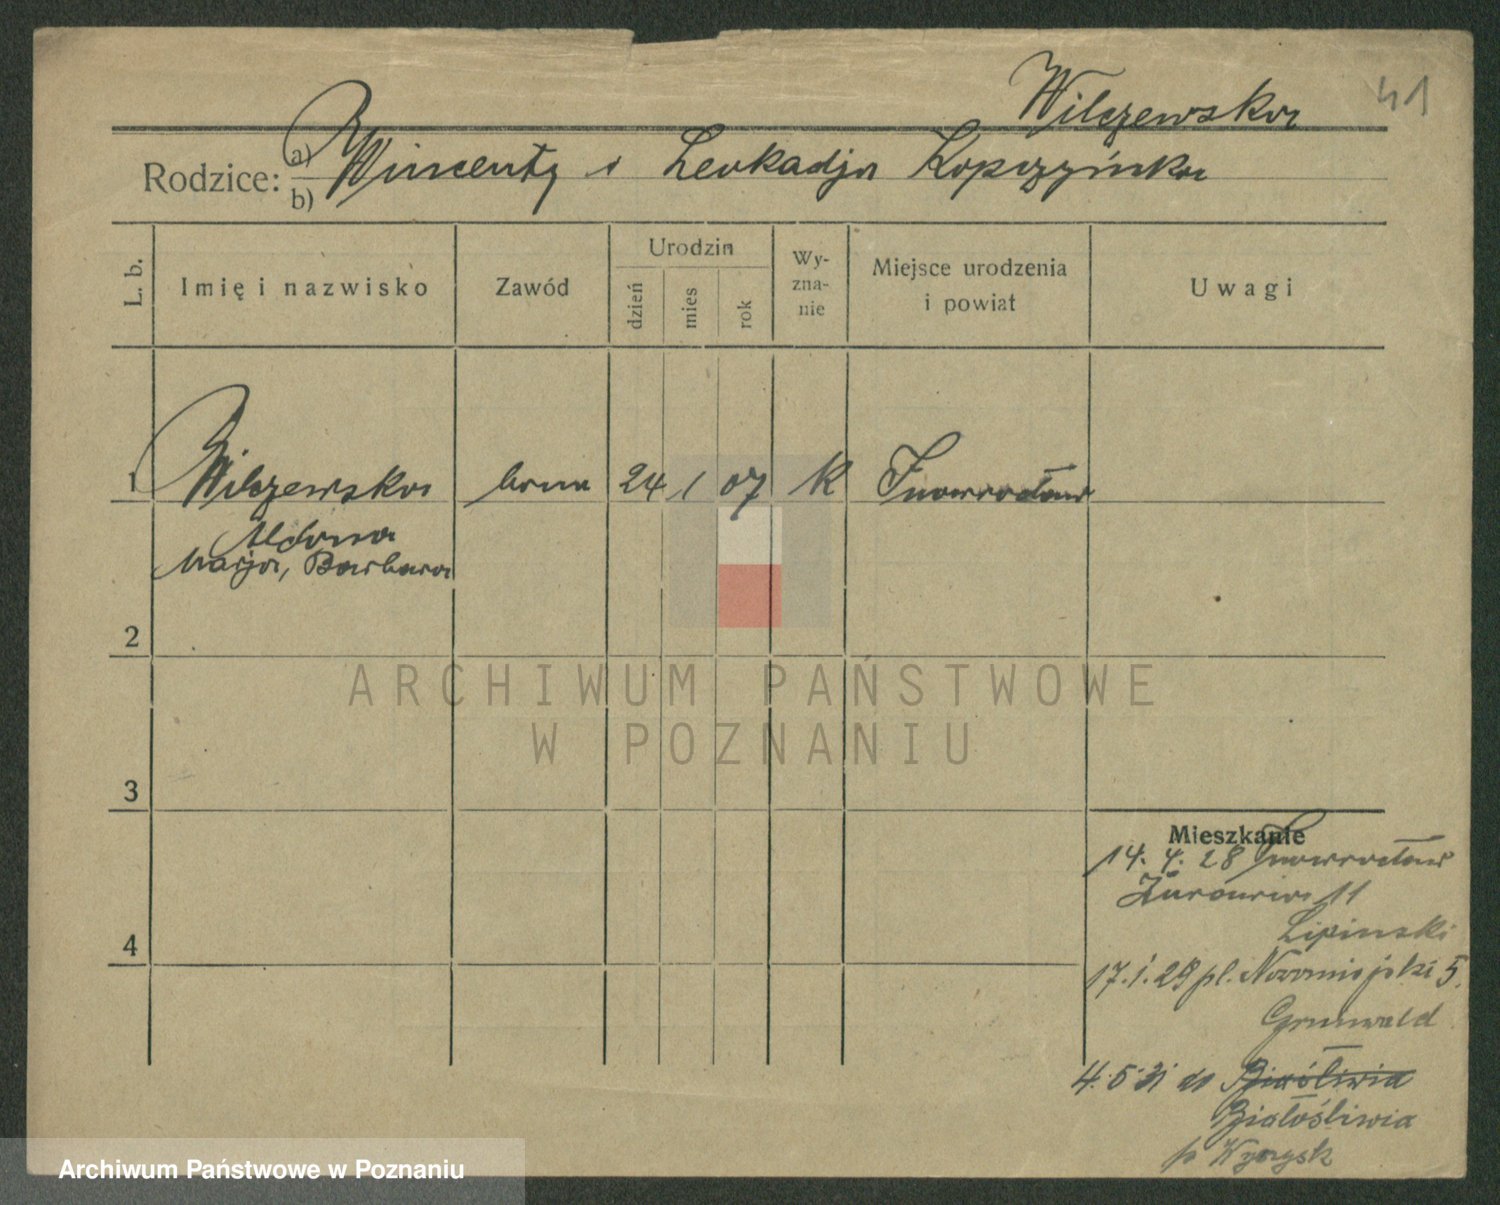 Wilczewska 41
Rodzice: a) Wincenty i Leokadja Kopczyńska
b)
L. b. Imię i nazwisko Zawód Urodzin dzień mies rok Wyznanie Miejsce urodzenia i powiat Uwagi
1 Wilczewska bona 24 1 07 K Inowrocław
Aldona
Marja, Barbara
2
ARCHIWUM PAŃSTWOWE
W POZNANIU
3
Mieszkanie
14. 4. 28 Inowrocław
11
Lipinski
4
17. 1. 29 pl. Nowomiejski 5.
Grunwald
4. 5 31 do
Białośliwia
p Wyrzysk
Archiwum Państwowe w Poznaniu